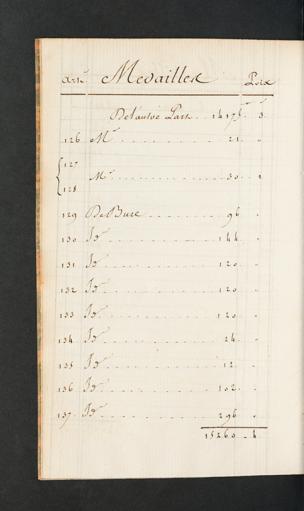 Art. Medailles Prix
De l'autre Part .. 14176 . 3
126 Mr . . . . . . . 21 . "
127
128 Mr . . . . . . . 30 . 1
129 De Bure . . . . . . . 96 . "
130 Id . . . . . . . 144 . "
131 Id . . . . . . . 120 . "
132 Id . . . . . . . 120 . "
133 Id . . . . . . . 120 . "
134 Id . . . . . . . 24 . "
135 Id . . . . . . . 12 . "
136 Id . . . . . . . 102 . "
137 Id . . . . . . . 296 . "
15260 . 4